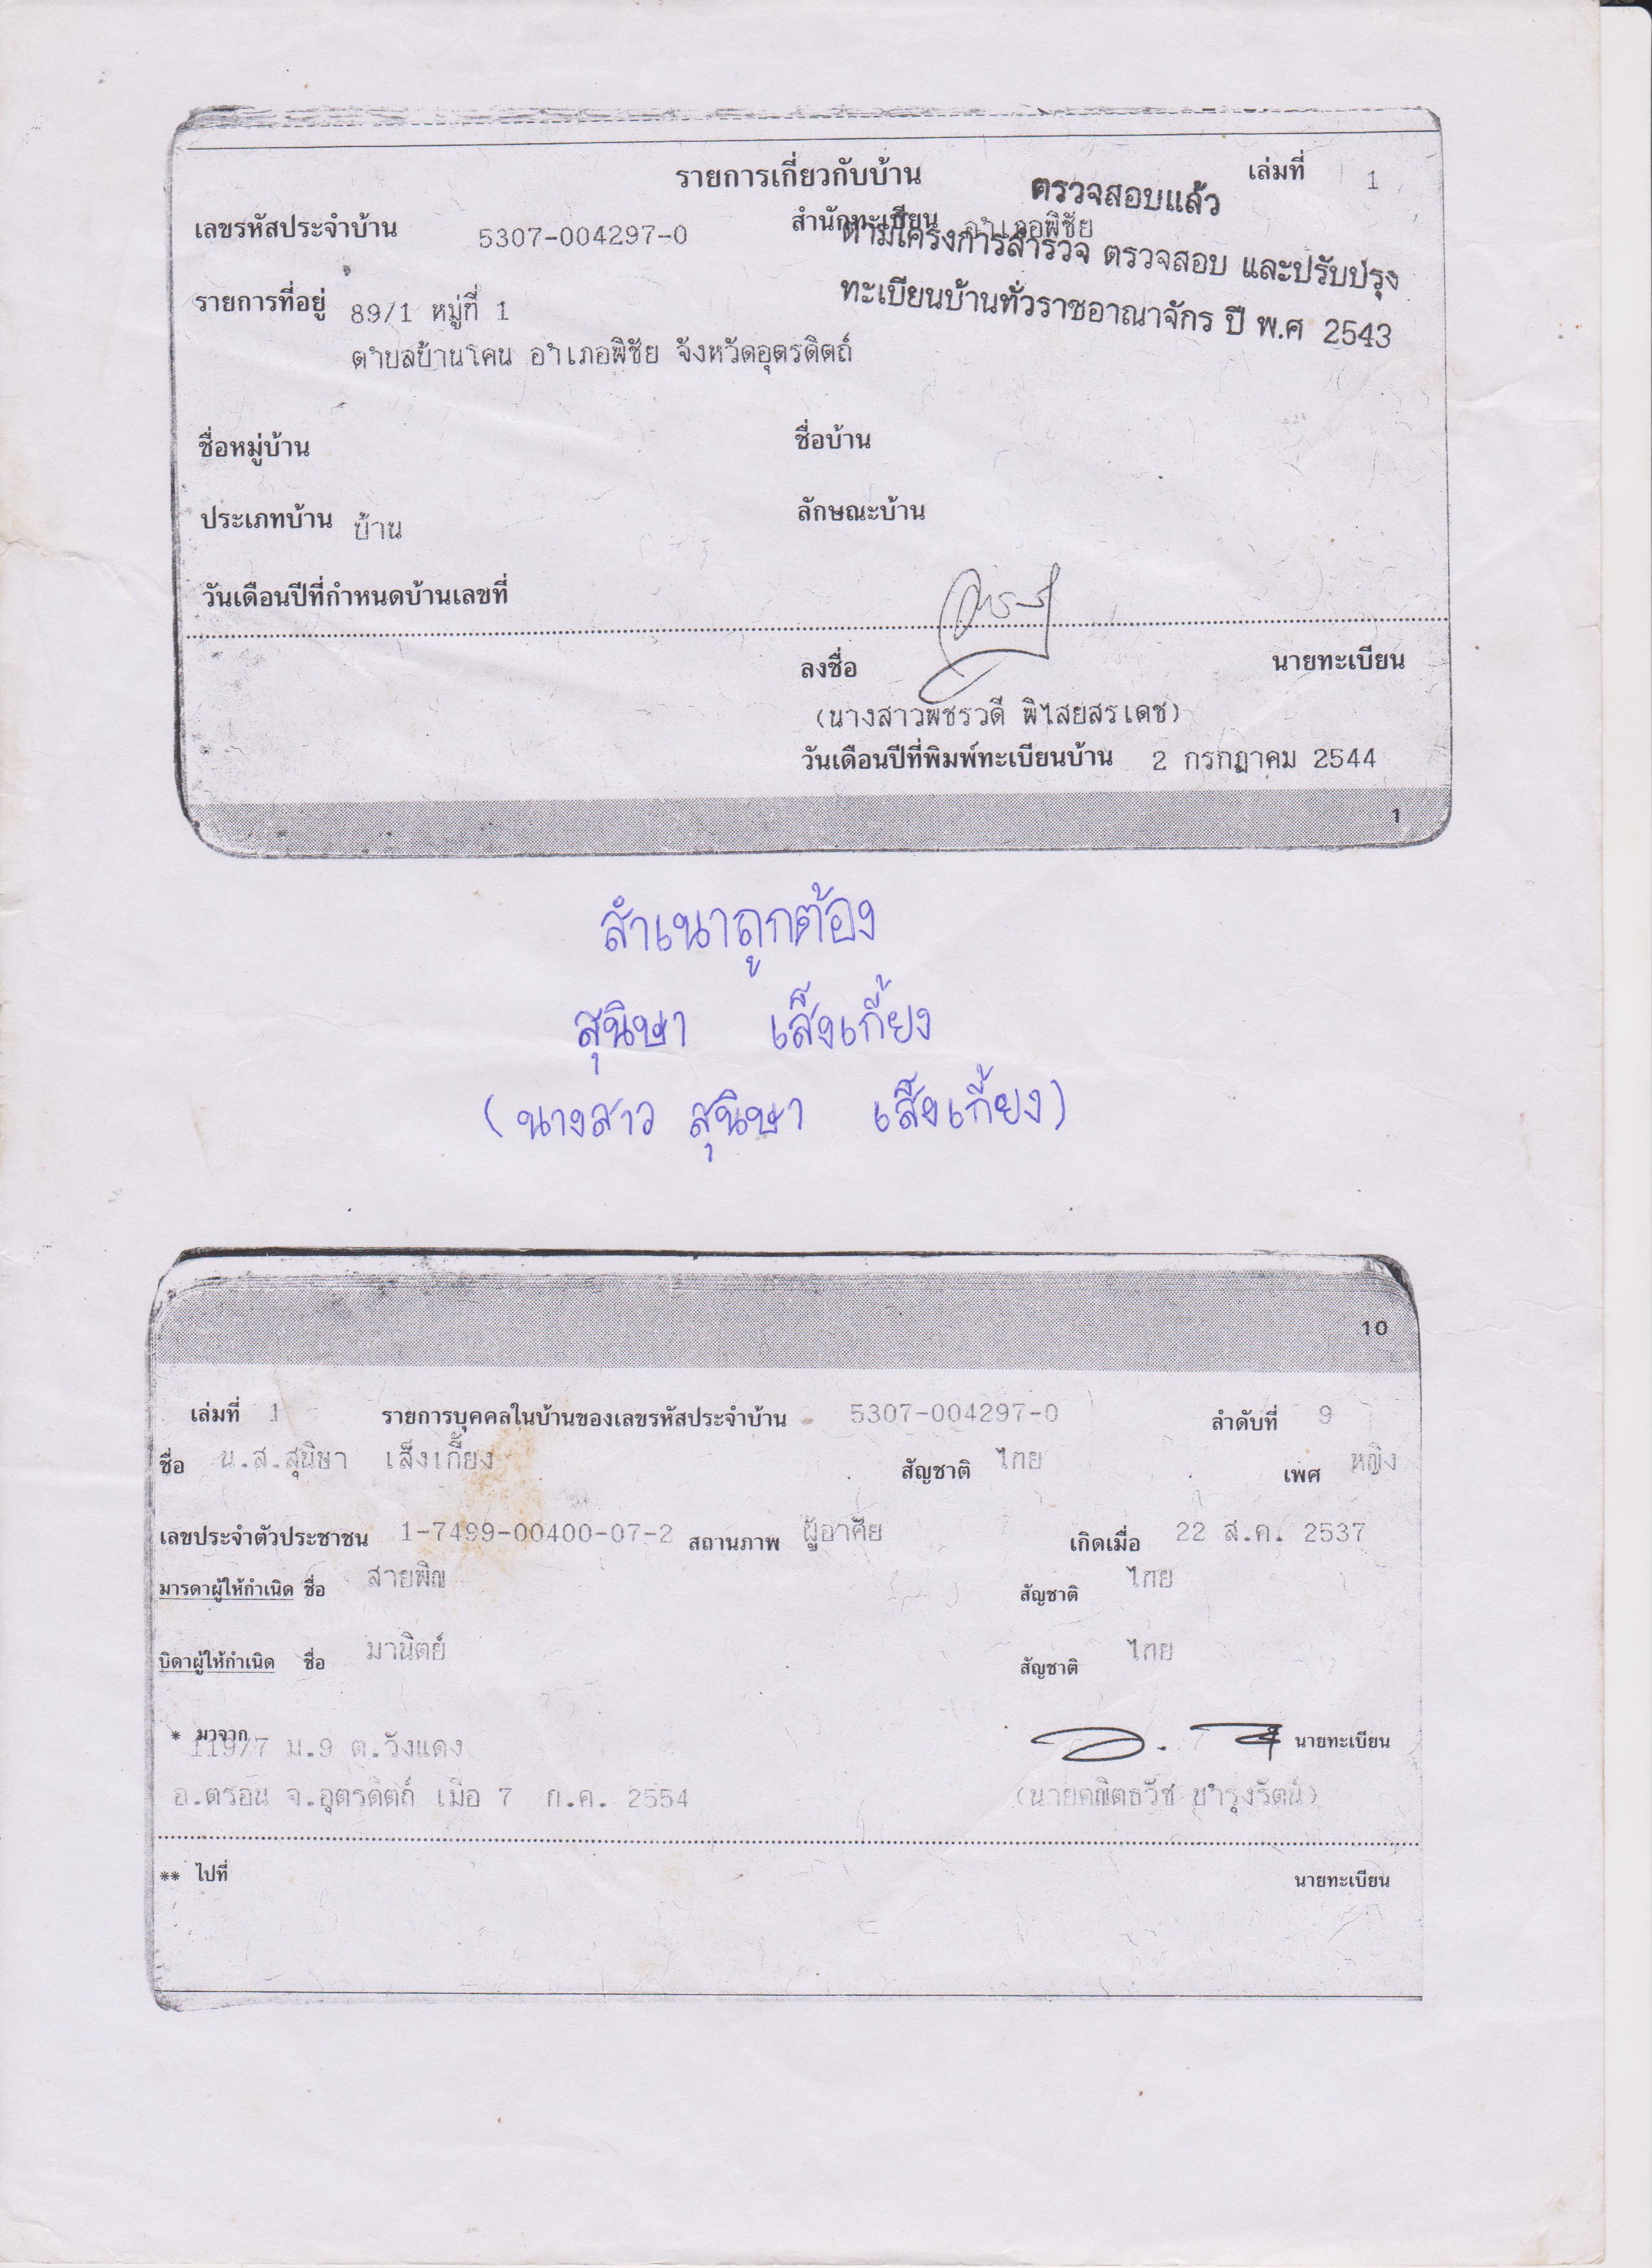 รายการเกี่ยวกับบ้าน เล่มที่ 1
ตรวจสอบแล้ว
เลขรหัสประจำบ้าน 5307-004297-0 สำนักทะเบียน อำเภอพิชัย
ตามโครงการสำรวจ ตรวจสอบ และปรับปรุง
รายการที่อยู่ 89/1 หมู่ที่ 1
ทะเบียนบ้านทั่วราชอาณาจักร ปี พ.ศ 2543
ตำบลบ้านโคน อำเภอพิชัย จังหวัดอุตรดิตถ์
ชื่อหมู่บ้าน ชื่อบ้าน
ประเภทบ้าน บ้าน ลักษณะบ้าน
วันเดือนปีที่กำหนดบ้านเลขที่
ลงชื่อ นายทะเบียน
(นางสาวพัชรวดี พิไสยสรเดช)
วันเดือนปีที่พิมพ์ทะเบียนบ้าน 2 กรกฎาคม 2544
1
สำเนาถูกต้อง
สุนิษา เส็งเกี้ยง
(นางสาว สุนิษา เส็งเกี้ยง)
10
เล่มที่ 1 รายการบุคคลในบ้านของเลขรหัสประจำบ้าน 5307-004297-0 ลำดับที่ 9
ชื่อ น.ส.สุนิษา เส็งเกี้ยง สัญชาติ ไทย เพศ หญิง
เลขประจำตัวประชาชน 1-7499-00400-07-2 สถานภาพ ผู้อาศัย เกิดเมื่อ 22 ส.ค. 2537
มารดาผู้ให้กำเนิด ชื่อ สายพิณ สัญชาติ ไทย
บิดาผู้ให้กำเนิด ชื่อ มานิตย์ สัญชาติ ไทย
* มาจาก นายทะเบียน
119/7 ม.9 ต.วังแดง
อ.ตรอน จ.อุตรดิตถ์ เมื่อ 7 ก.ค. 2554 (นายคณิตธวัช บำรุงรัตน์)
** ไปที่ นายทะเบียน